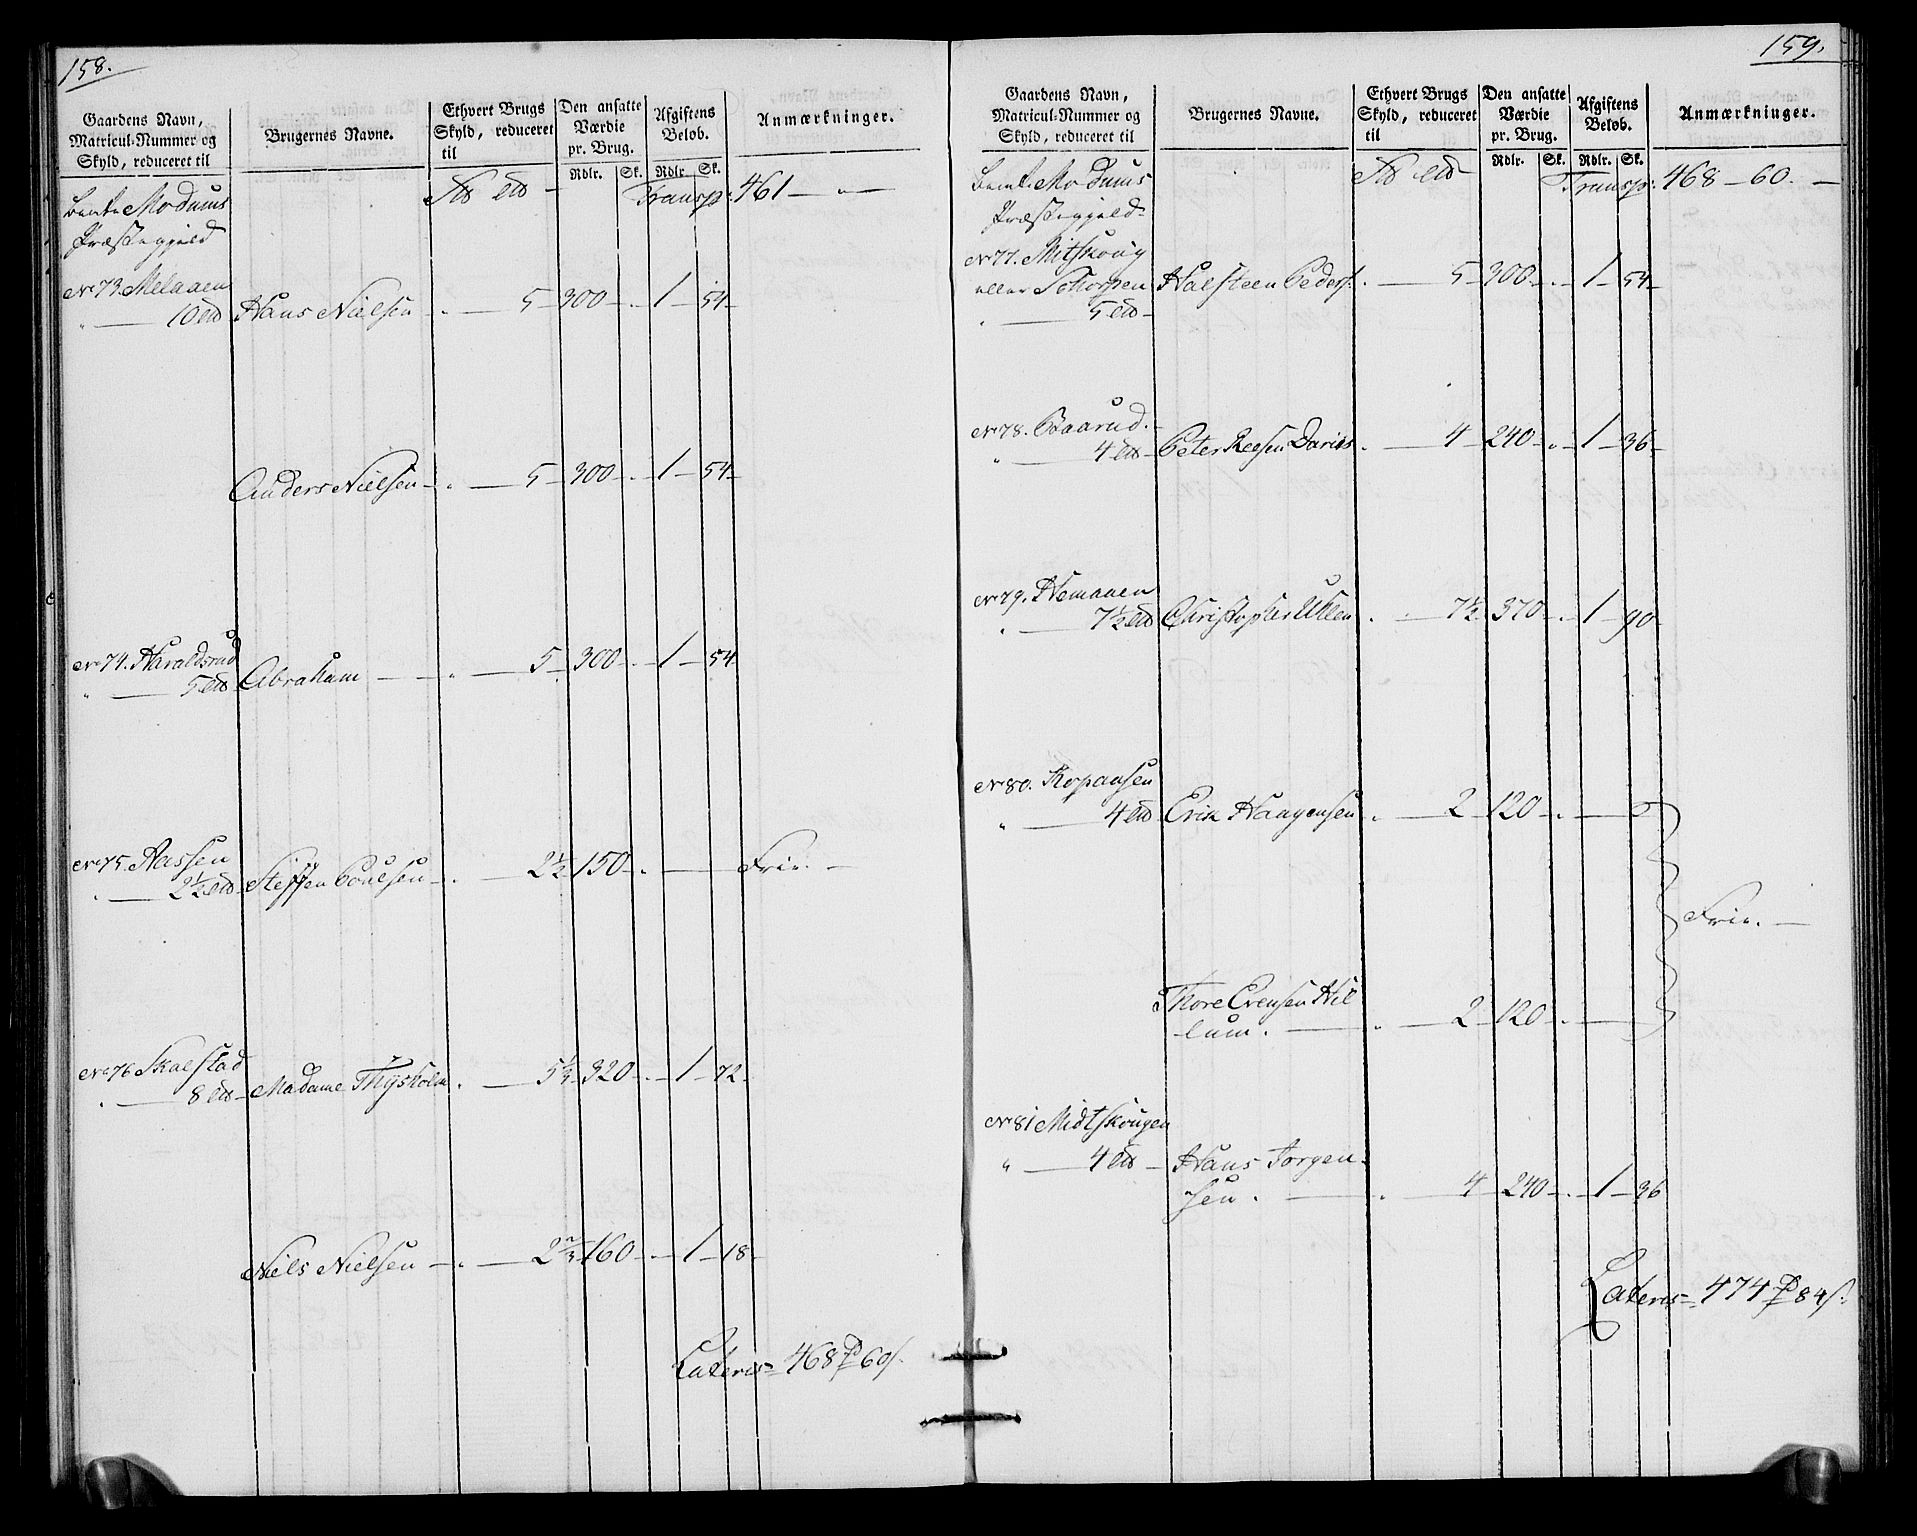 158.
Gaardens Navn, Matricul-Nummer og Skyld, reduceret til | Brugernes Navne. | Ethvert Brugs Skyld, reduceret til | Den ansatte Værdie pr. Brug. | Afgiftens Beløb. | Anmærkninger.
Rdlr. Sk. Rdlr. Sk.
Transp: 461 — " —
Modums
Præstegjeld
No 73. Melaaen
" — 10 Hans Nielsen " — 5 — 300 — " — 1 — 54 —
Anders Nielsen — " — 5 — 300 — " — 1 — 54 —
No 74. Haraldsrud
" — 5 Abraham — " — 5 — 300 — " — 1 — 54
No 75. Aassen
" — 2½ Steffen Poulsen — " — 2½ 150 — " — Frie. —
No 76 Skalstad
" — 8 Madame Thyskolm " — 5⅓ — 320 — " — 1 — 72 —
Niels Nielsen — " — 2⅔ — 160 — " — 1 — 18 —
Lateris — 468 60
159.
Gaardens Navn, Matricul-Nummer og Skyld, reduceret til | Brugernes Navne. | Ethvert Brugs Skyld, reduceret til | Den ansatte Værdie pr. Brug. | Afgiftens Beløb. | Anmærkninger.
Rdlr. Sk. Rdlr. Sk.
Transp: 468 — 60. —
Modums
Præstegjeld
No 77. Mitskoug
eller Schorpen Halsteen Peders: " — 5 — 300 — " — 1 — 54 —
" — 5
No 78. Baarud.
" — 4 Peter " — 4 — 240 — " — 1 — 36 —
No 79. Homanen
" — 7½ Christopher Ullen " — 7½ — 370 — " — 1 — 90
No 80. Kopaasen
" — 4 Erik Haagensen " — 2 — 120 — " —
Frie. —
Thore Evensen Hil
lum. — " — 2 — 120 — " —
No 81 Midtskougen
" — 4 Hans Jorgen
sen. — " — 4 — 240 — " — 1 — 36
Lateris — 474 84